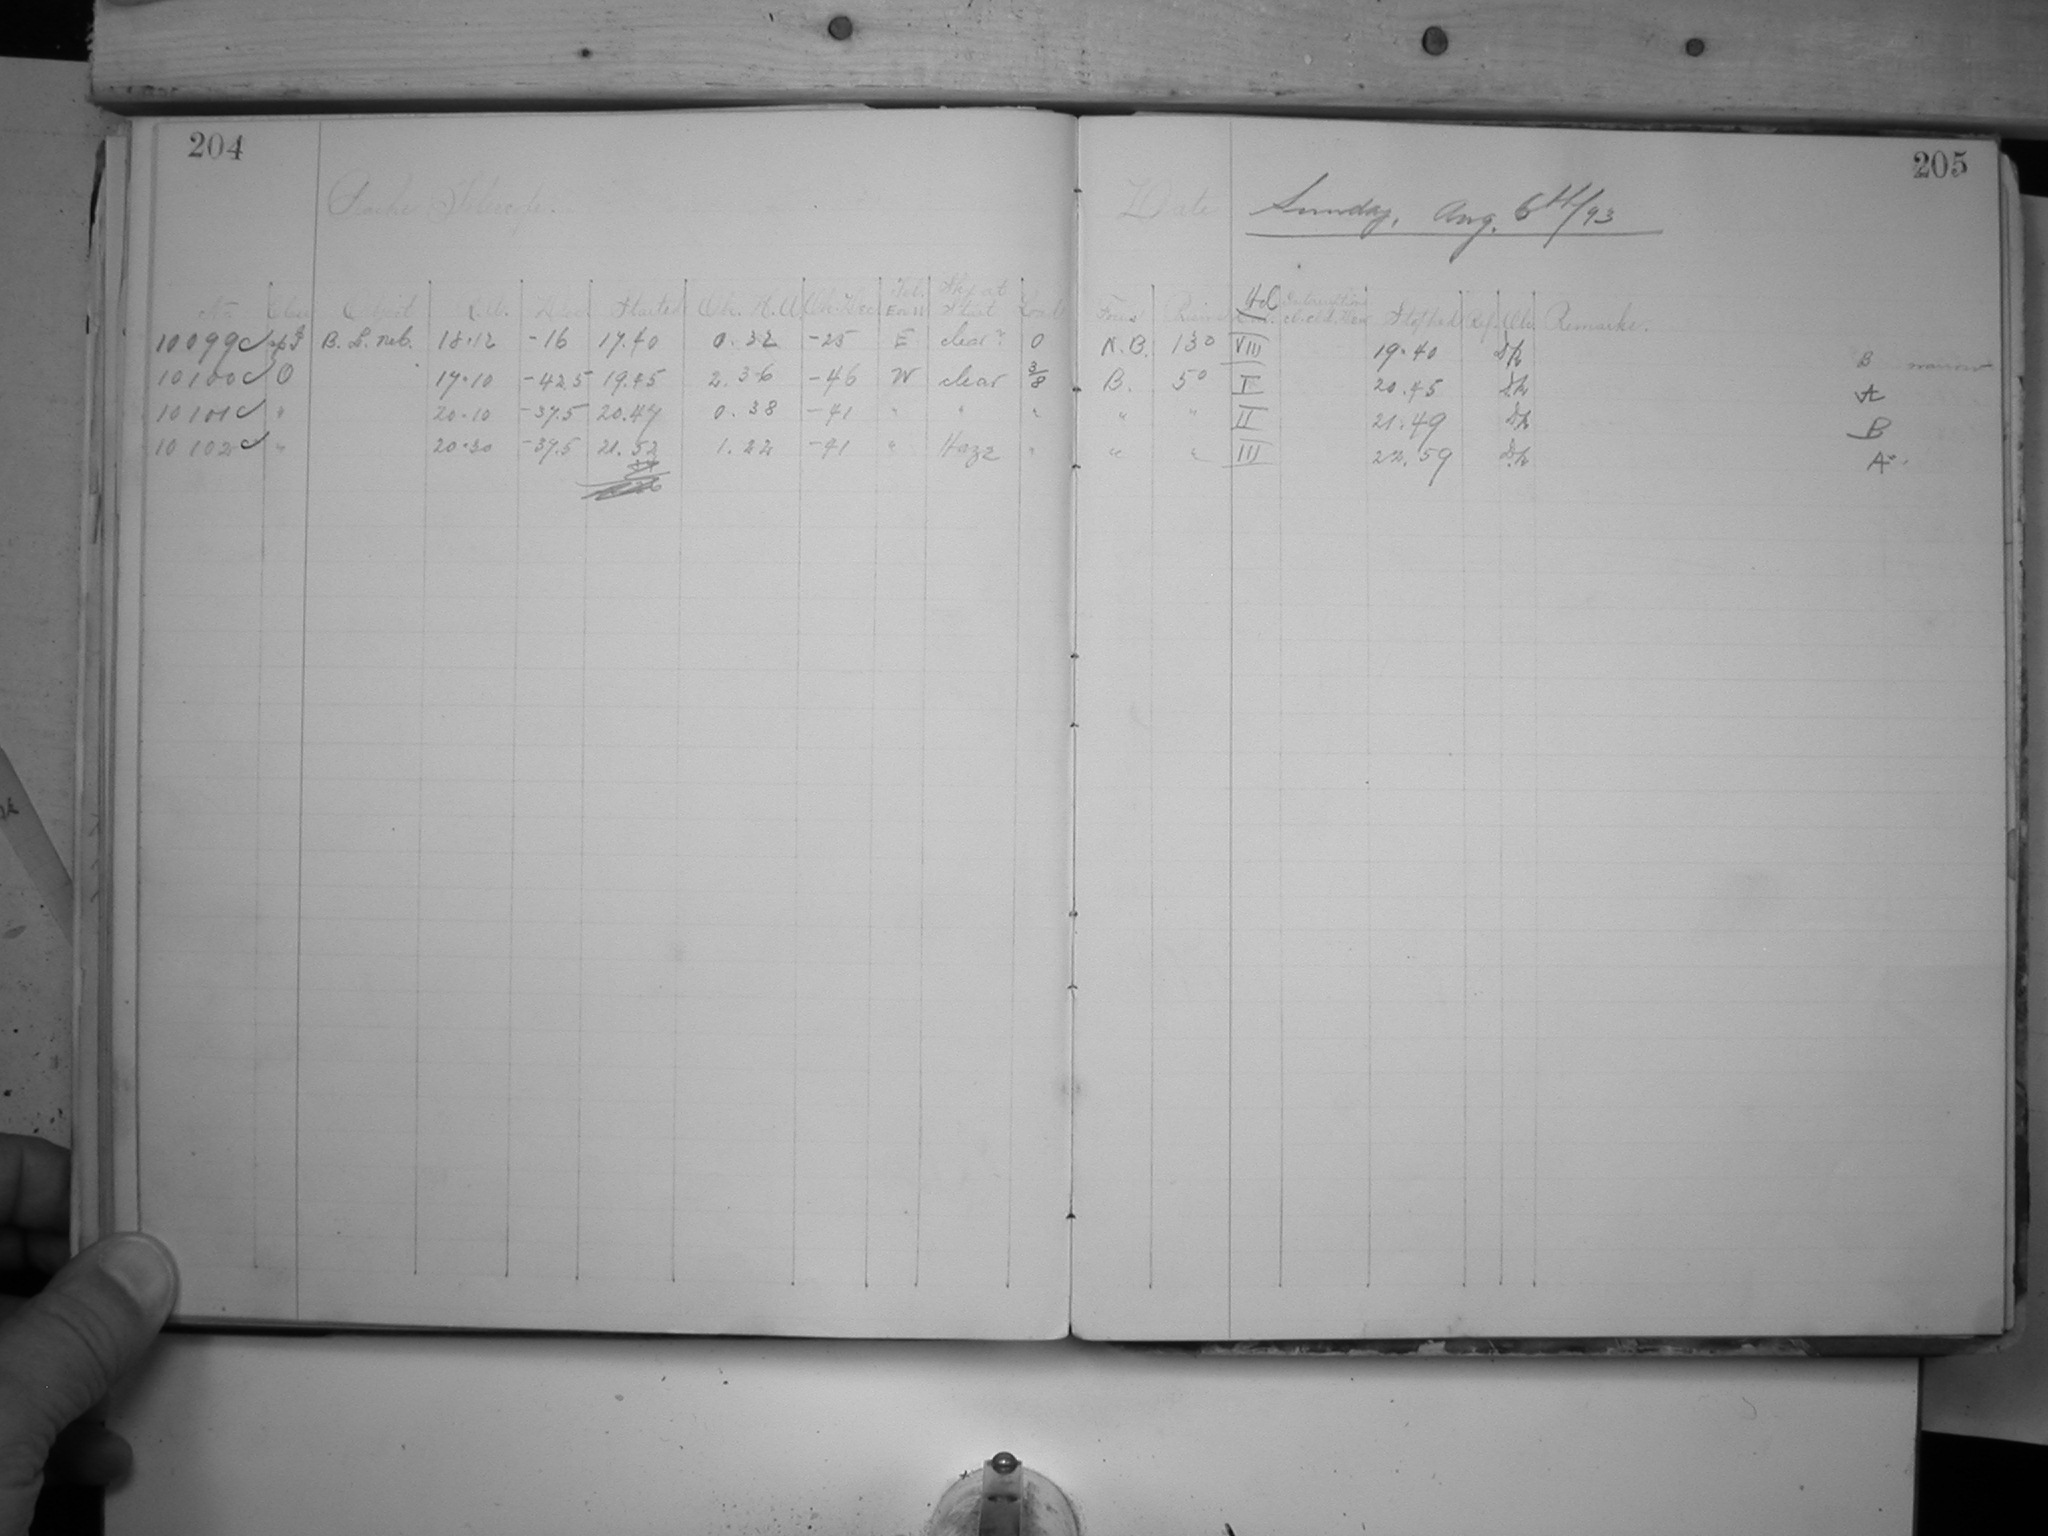 204
205
Date Sunday, Aug. 6th/93
No Class Object R.A. Dec Started Ob. H.A. Ob. Dec Tel. E or W Sky at Start Focus Prism Hol Stopped Ob. Remarks.
10099 B. L. neb. 18.12 -16 17.40 0.32 -25 E clear 0 N.B. 130 VIII 19.40 B narrow
10100 O 17.10 -42.5 19.45 2.36 -46 W clear 3/8 B. 50 I 20.45 A
10101 " 20.10 -37.5 20.47 0.38 -41 " " " " " II 21.49 B
10102 " 20.30 -37.5 21.52 1.22 -41 " Haze " " " III 22.59 A